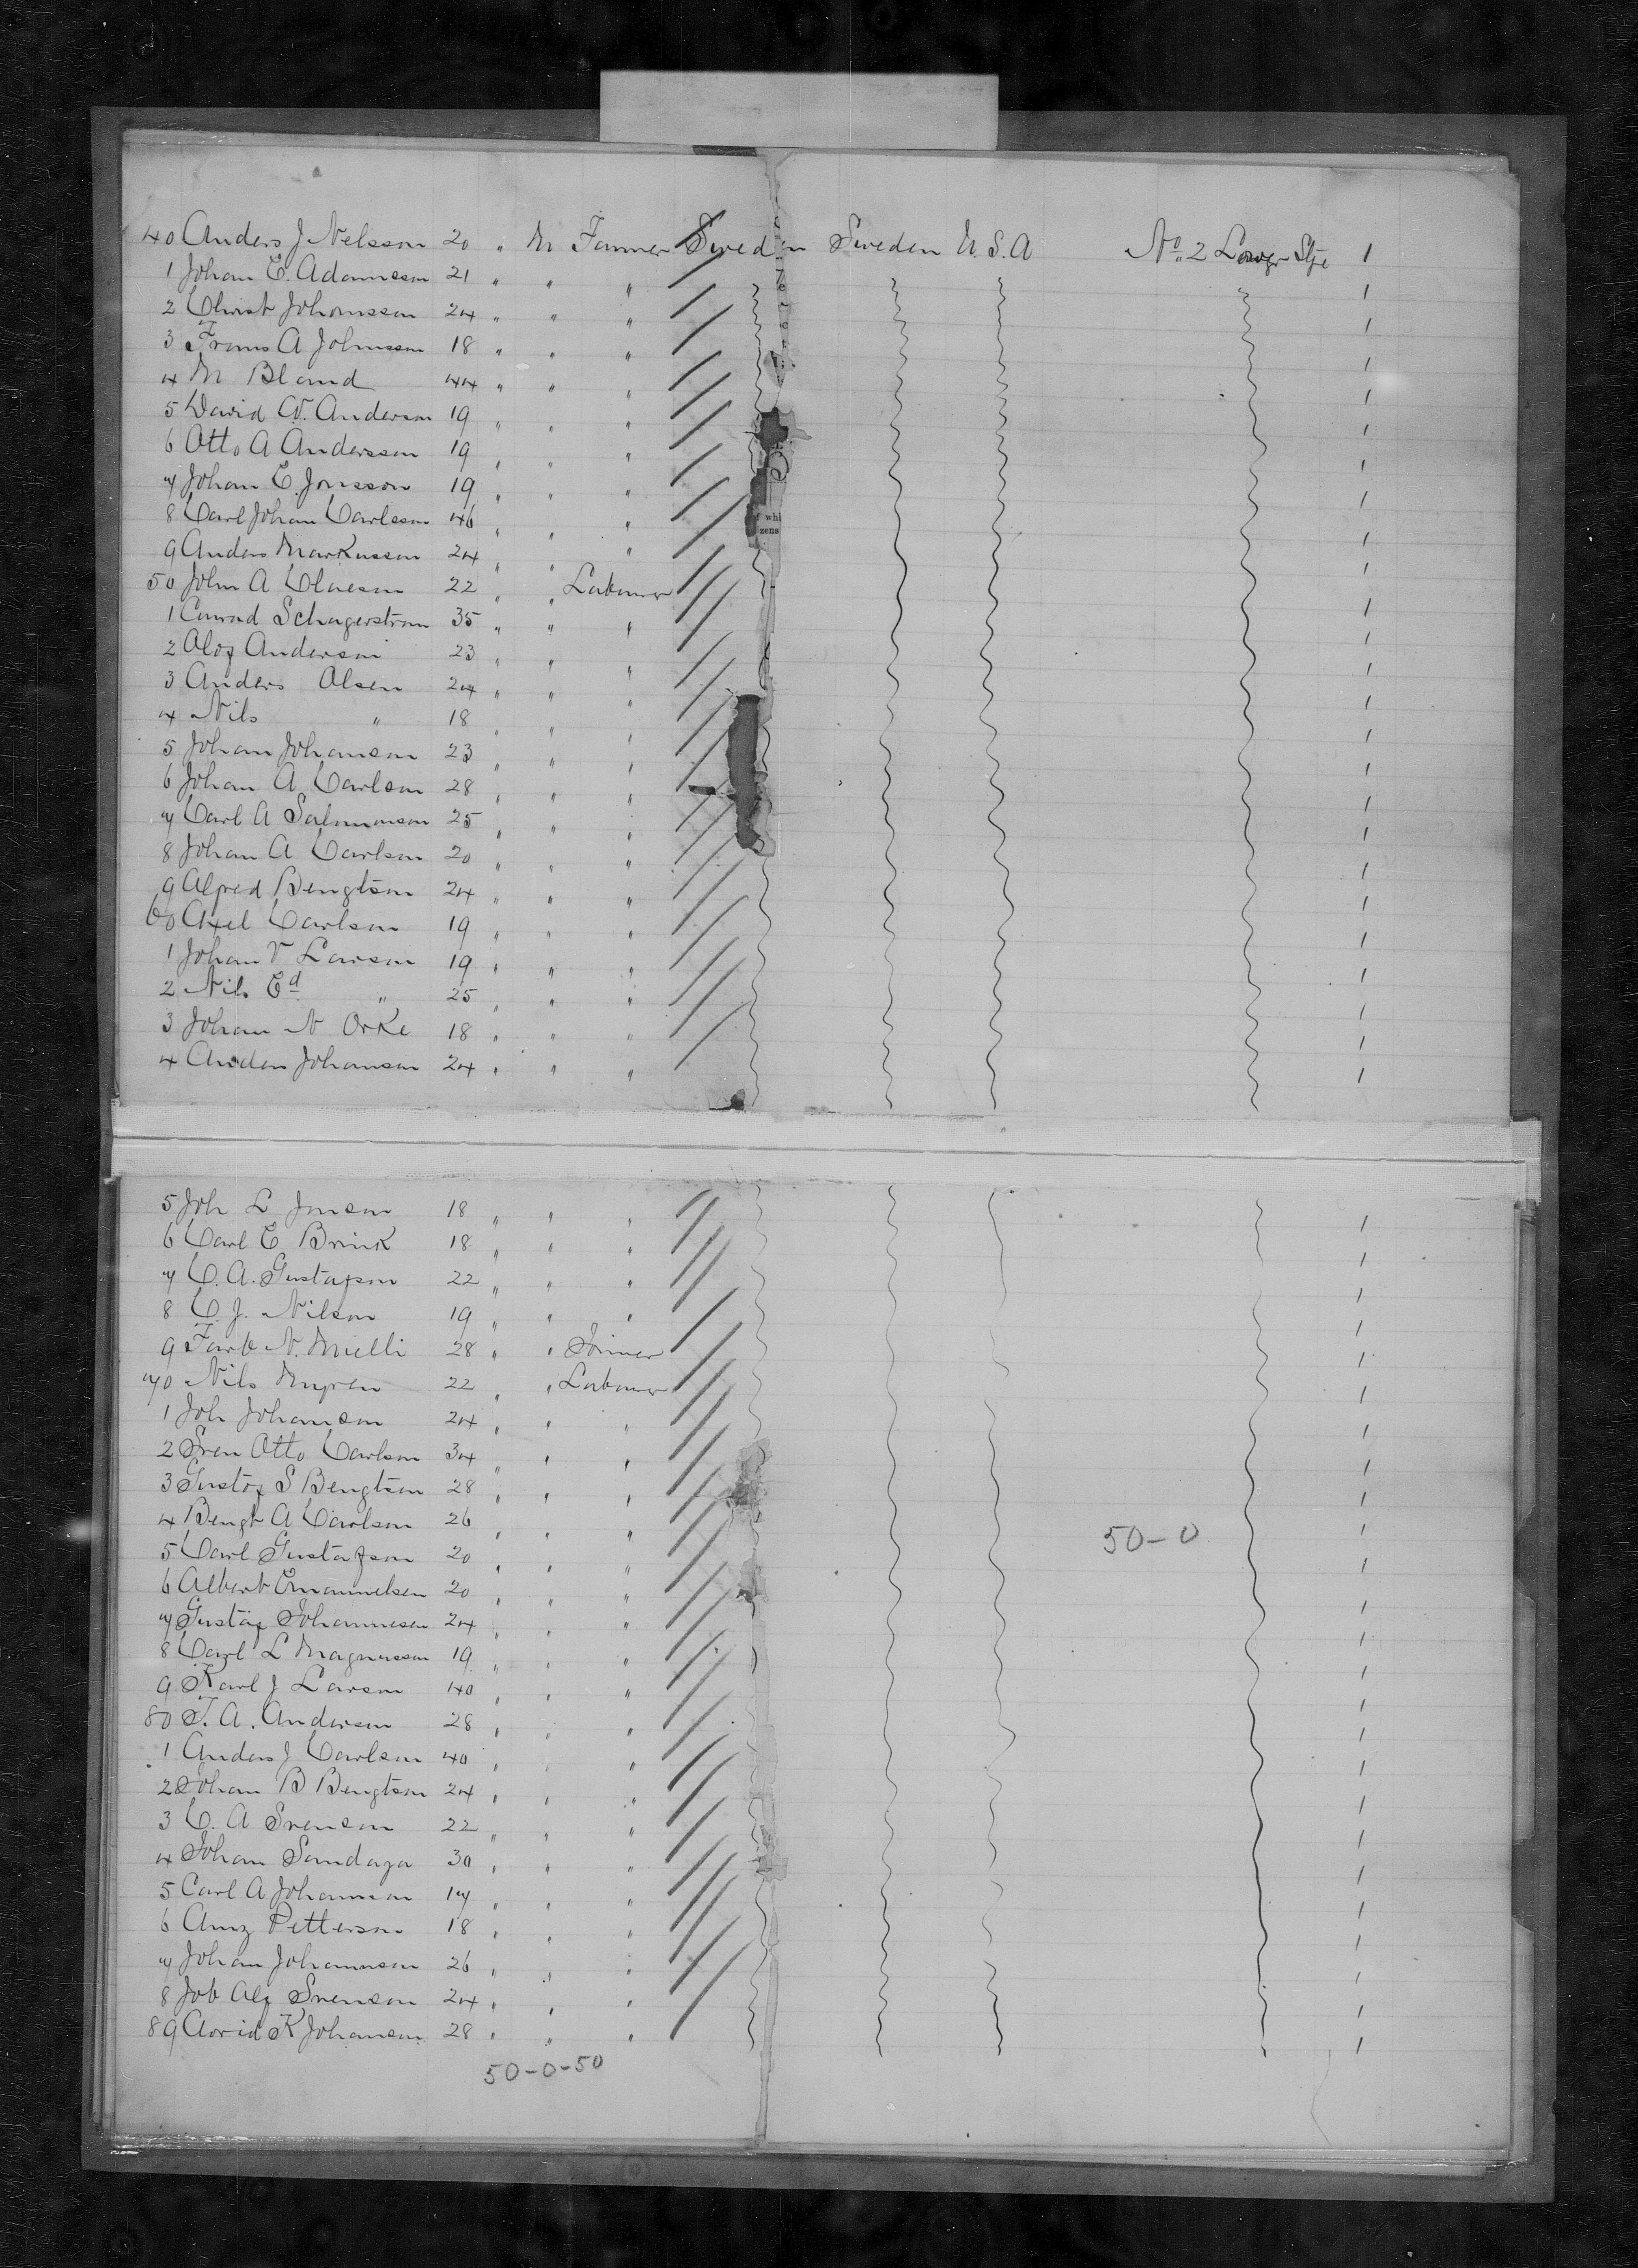 40 Anders J Nelsson 20 " M Farmer Sweden Sweden U.S.A No. 2 Lower Stge 1
1 Johan E. Adamsson 21 " " " 1
2 Christ Johansson 24 " " " 1
3 Frans A Johnsson 18 " " " 1
4 M Bland 44 " " " 1
5 David W. Anderson 19 " " " 1
6 Otto A Andersson 19 " " " 1
7 Johan E. Jonsson 19 " " " 1
8 Carl Johan Carlsson 46 " " " 1
9 Anders Markusson 24 " " " 1
50 John A Claeson 22 " " Labourer 1
1 Conrad Schagerstrom 35 " " " 1
2 Alof Anderson 23 " " " 1
3 Anders Olsen 24 " " " 1
4 Nils " 18 " " " 1
5 Johan Johanson 23 " " " 1
6 Johan A. Carlson 28 " " " 1
7 Carl A Salomonson 25 " " " 1
8 Johan A Carlson 20 " " " 1
9 Alfred Bengtson 24 " " " 1
60 Axel Carlson 19 " " " 1
1 Johan V Larson 19 " " " 1
2 Nils Ed " 25 " " " 1
3 Johan N Orke 18 " " " 1
4 Anden Johanson 24 " " " 1
5 Joh L Jonson 18 " " " 1
6 Carl E Brink 18 " " " 1
7 C. A. Gustafson 22 " " " 1
8 C. J. Nilson 19 " " " 1
9 N. Mielli 28 " " Joiner 1
70 Nils Myren 22 " " Labourer 1
1 Joh Johanson 24 " " " 1
2 Sven Otto Carlson 34 " " " 1
3 Gustof S Bengtson 28 " " " 1
4 Bengt A Carlson 26 " " " 50-0 1
5 Carl Gustafson 20 " " " 1
6 Albert Emanuelsen 20 " " " 1
7 Gustaf Johannesen 24 " " " 1
8 Carl L Magnusson 19 " " " 1
9 Karl J Larson 40 " " " 1
80 F. A. Anderson 28 " " " 1
1 Anders J Carlson 40 " " " 1
2 Johan B Bengtson 24 " " " 1
3 C. A Svenson 22 " " " 1
4 Johan 30 " " " 1
5 Carl A Johannson 17 " " " 1
6 Petterson 18 " " " 1
7 Johan Johannson 26 " " " 1
8 Job Alf Svenson 24 " " " 1
89 Arvid K Johanson 28 " " " 1
50-0-50